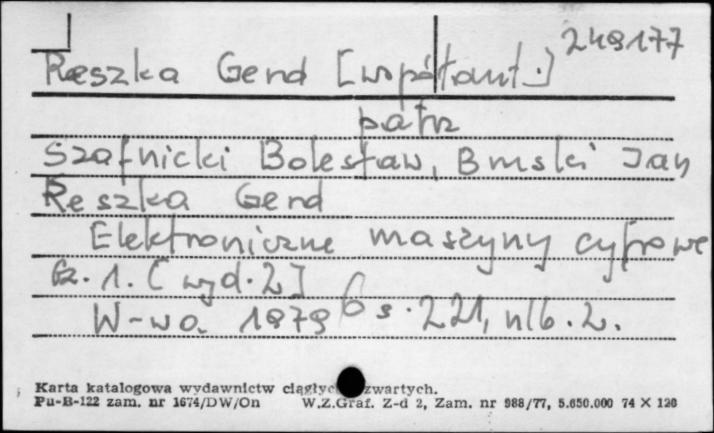 249177
Reszka Gerd [współaut.]
patrz
Szafnicki Bolesław, Bruski Jan
Reszka Gerd
Elektroniczne maszyny cyfrowe
Cz. 1. [wyd. 2]
W-wa 1979 s. 221, nlb. 2.
Karta katalogowa wydawnictw ciągłyc zwartych.
Pu-B-122 zam. nr 1674/DW/On W.Z.Graf. Z-d 2, Zam. nr 988/77, 5.650.000 74 X 120